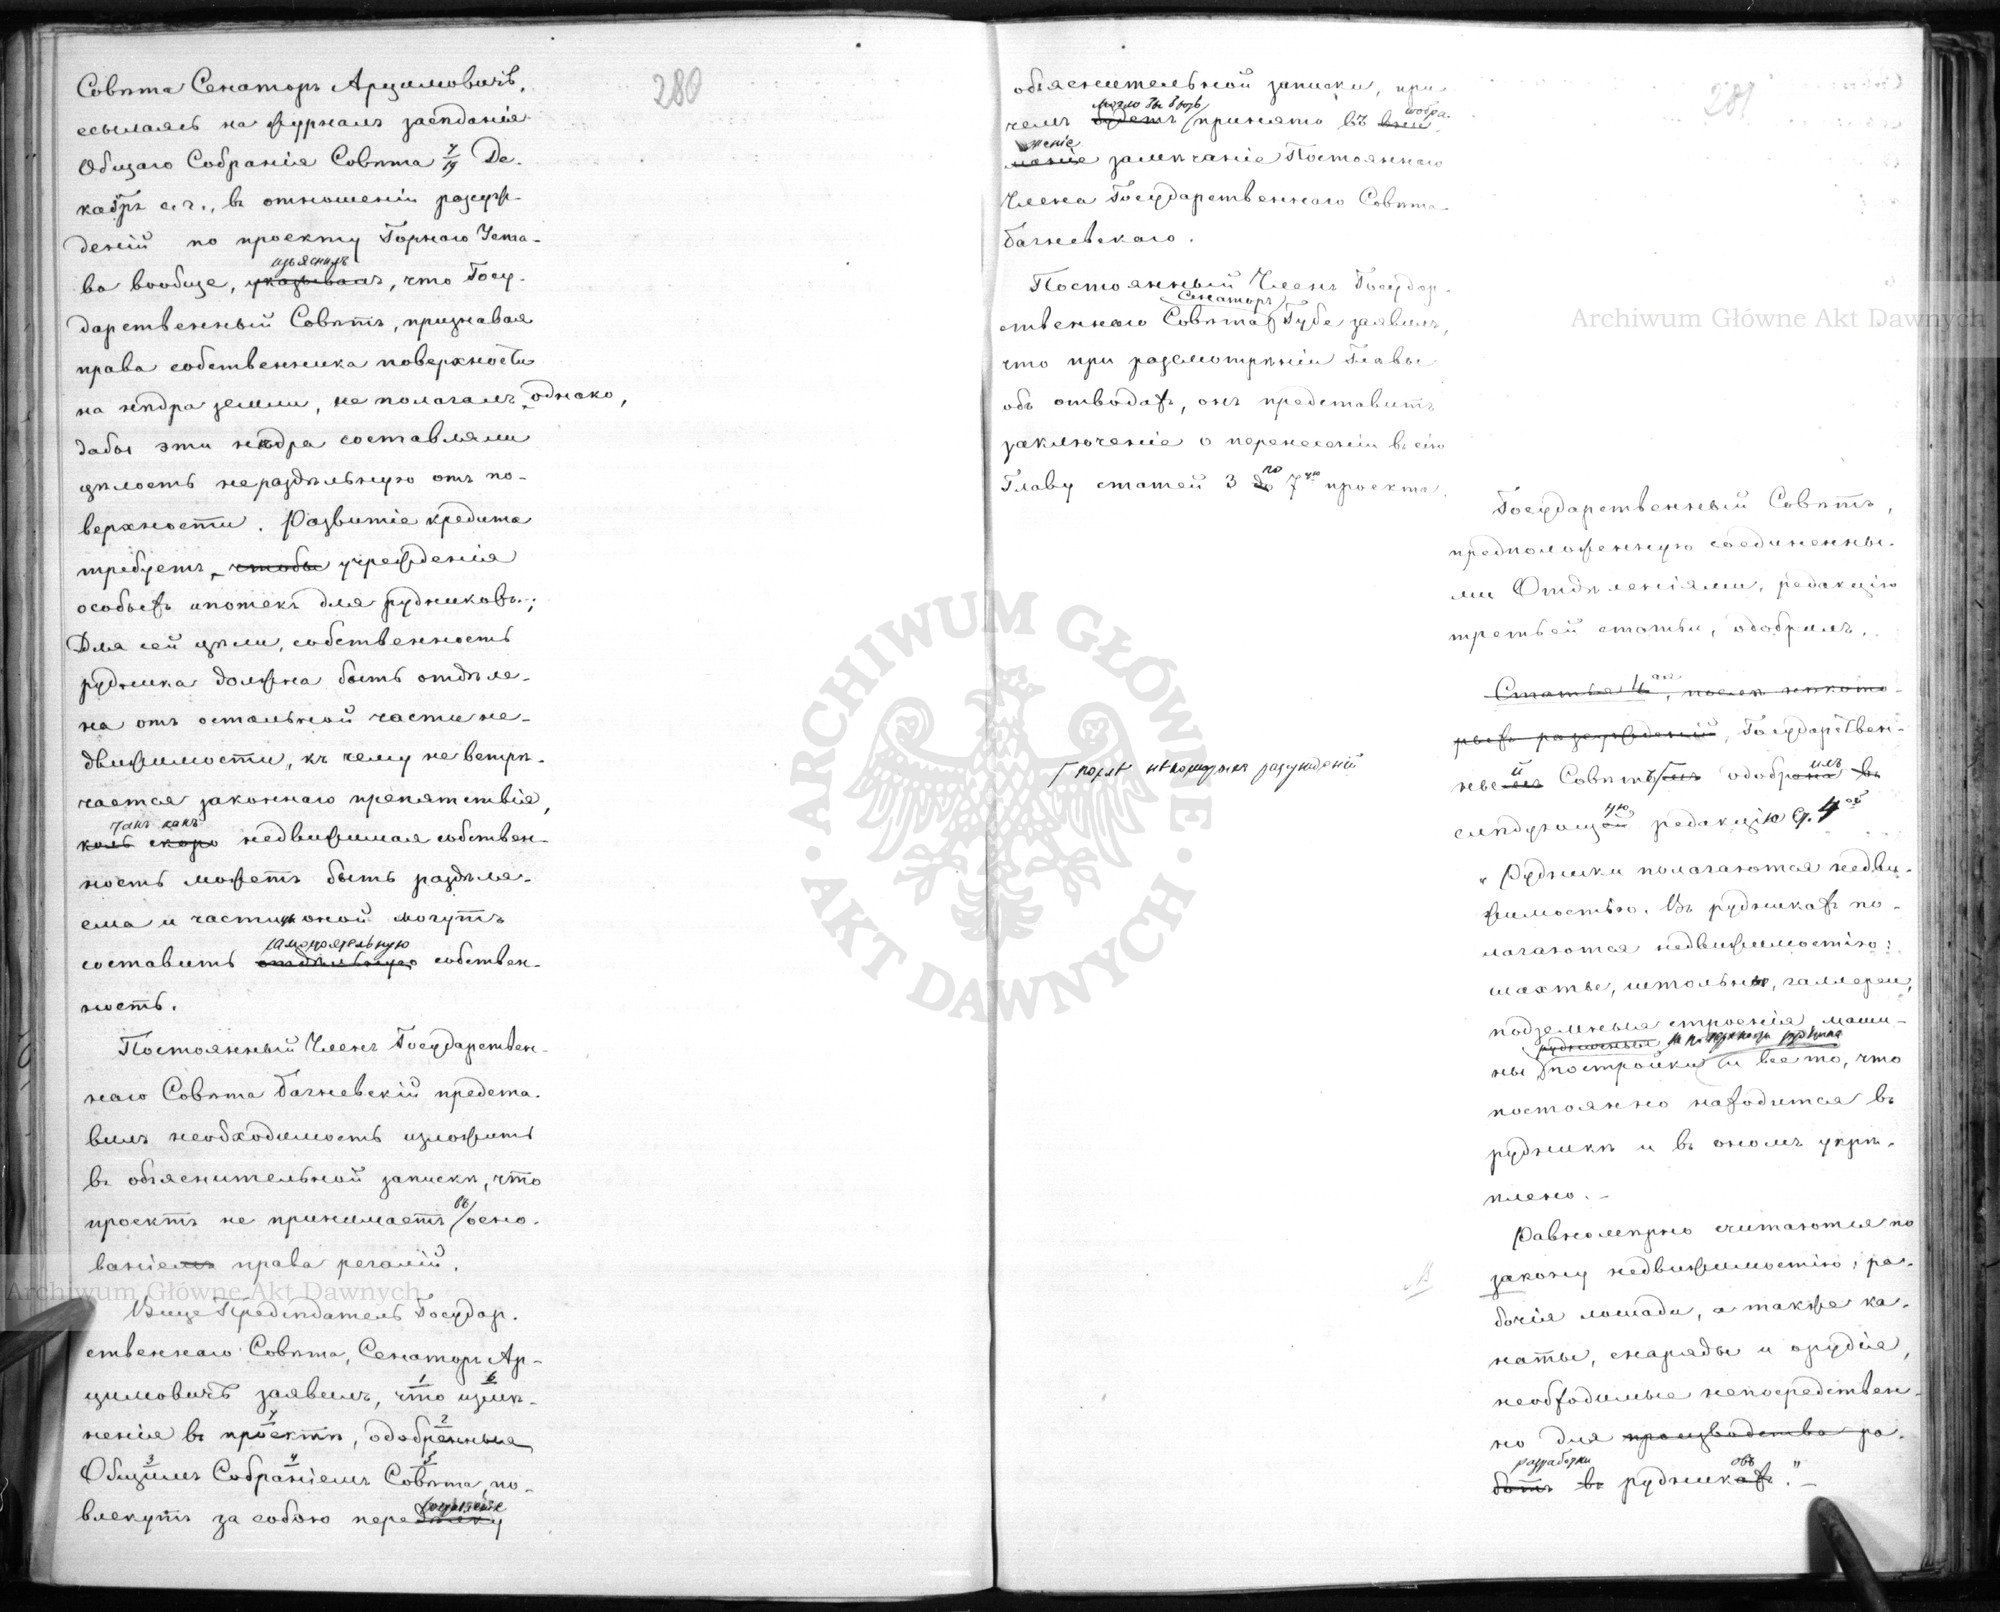 280
Совѣта Сенаторъ Арцимовичъ,
ссылаясь на журналъ засѣданія
Общаго Собранія Совѣта 7/19 Де-
кабрѣ с. г., въ отношеніи разсуж-
деній по проекту Горнаго Уста-
изъяснилъ
ва вообще, указывалъ, что Госу-
дарственный Совѣтъ, признавая
права собственника поверхности
на нѣдра земли, не полагалъ однако,
дабы эти нѣдра составляли
цѣлость нераздѣльную отъ по-
верхности. Развитіе кредита
требуетъ, чтобы учрежденія
особыхъ ипотекъ для рудниковъ;
Для сей цѣли, собственность
рудника должна быть отдѣле-
на отъ остальной части не-
движимости, къ чему не встрѣ-
чается законнаго препятствія,
такъ какъ
коль скоро недвижимая собствен-
ность можетъ быть раздѣля-
ема и части оной могутъ
самостоятельную
составить отдѣльную собствен-
ность.
Постоянный Членъ Государствен-
наго Совѣта Багневскій предста-
вилъ необходимость изложить
въ объяснительной запискѣ, что
въ
проектъ не принимаетъ осно-
ваніемъ права регалій.
Вице Предсѣдатель Государ-
ственнаго Совѣта, Сенаторъ Ар-
1 6
цимовичъ заявилъ, что измѣ-
7 2
ненія въ проектѣ, одобренныя
3 4 5
Общимъ Собраніемъ Совѣта, по-
влекутъ за собою пере
281
объяснительной записки, при
могло бы быть вообра-
чемъ будетъ принято въ вни-
женіе
маніе замѣчаніе Постояннаго
Члена Государственнаго Совѣта
Багневскаго.
Постоянный Членъ Государ-
Сенаторъ
ственнаго Совѣта Губе заявилъ,
что при разсмотрѣніи Главы
объ отводахъ, онъ представитъ
заключеніе о перенесеніи въ сію
по
Главу статей 3 до 7ую проекта.
Государственный Совѣтъ,
предположенную соединенны-
ми Отдѣленіями, редакцію
третьей статьи, одобрилъ.
Статья 4ая, послѣ нѣкото-
рыхъ разсужденій, Государствен-
й илъ
ныемъ Совѣтъомъ одобрена въ
ую
слѣдующей редакцію с. 4ой
послѣ нѣкоторыхъ разсужденій
„Рудники полагаются недви-
жимостью. Въ рудникахъ по-
лагаются недвижимостію:
шахты, штольны, галлереи,
подземныя строенія, маши-
рудничныя на поверхности рудника
ны постройки и все то, что
постоянно находится въ
рудникѣ и въ ономъ укрѣ-
плено. –
Равномѣрно считаются по
закону недвижимостію: ра-
бочія лошади, а также ка-
наты, снаряды и орудія,
необходимые непосредствен-
но для производства ра-
разработки овъ
ботъ въ рудникахъ.“ –
Archiwum Główne Akt Dawnych
Archiwum Główne Akt Dawnych
ARCHIWUM GŁÓWNE
AKT DAWNYCH